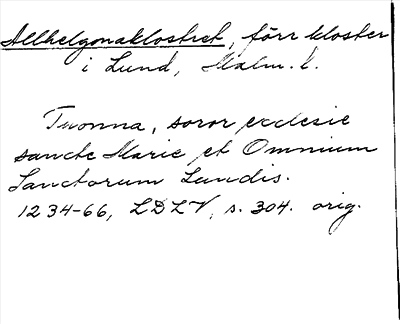 Allhelgonaklostret, förr kloster
i Lund, Malm. l.
Tuonna, soror ecclesie
sancte Marie et Omnium
Sanctorum Lundis.
1234-66, LDLV, s. 304. orig.